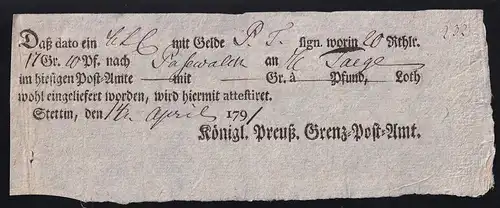 Daß dato ein mit Gelde P. T. sign. worin 20 Rthlr.
17 Gr. 10 Pf. nach Paßwalck an
im hiesigen Post-Amte mit Gr. à Pfund, Loth
wohl eingeliefert worden, wird hiermit attestiret.
Stettin, den 14. April 1791
Königl. Preuß. Grenz-Post-Amt.